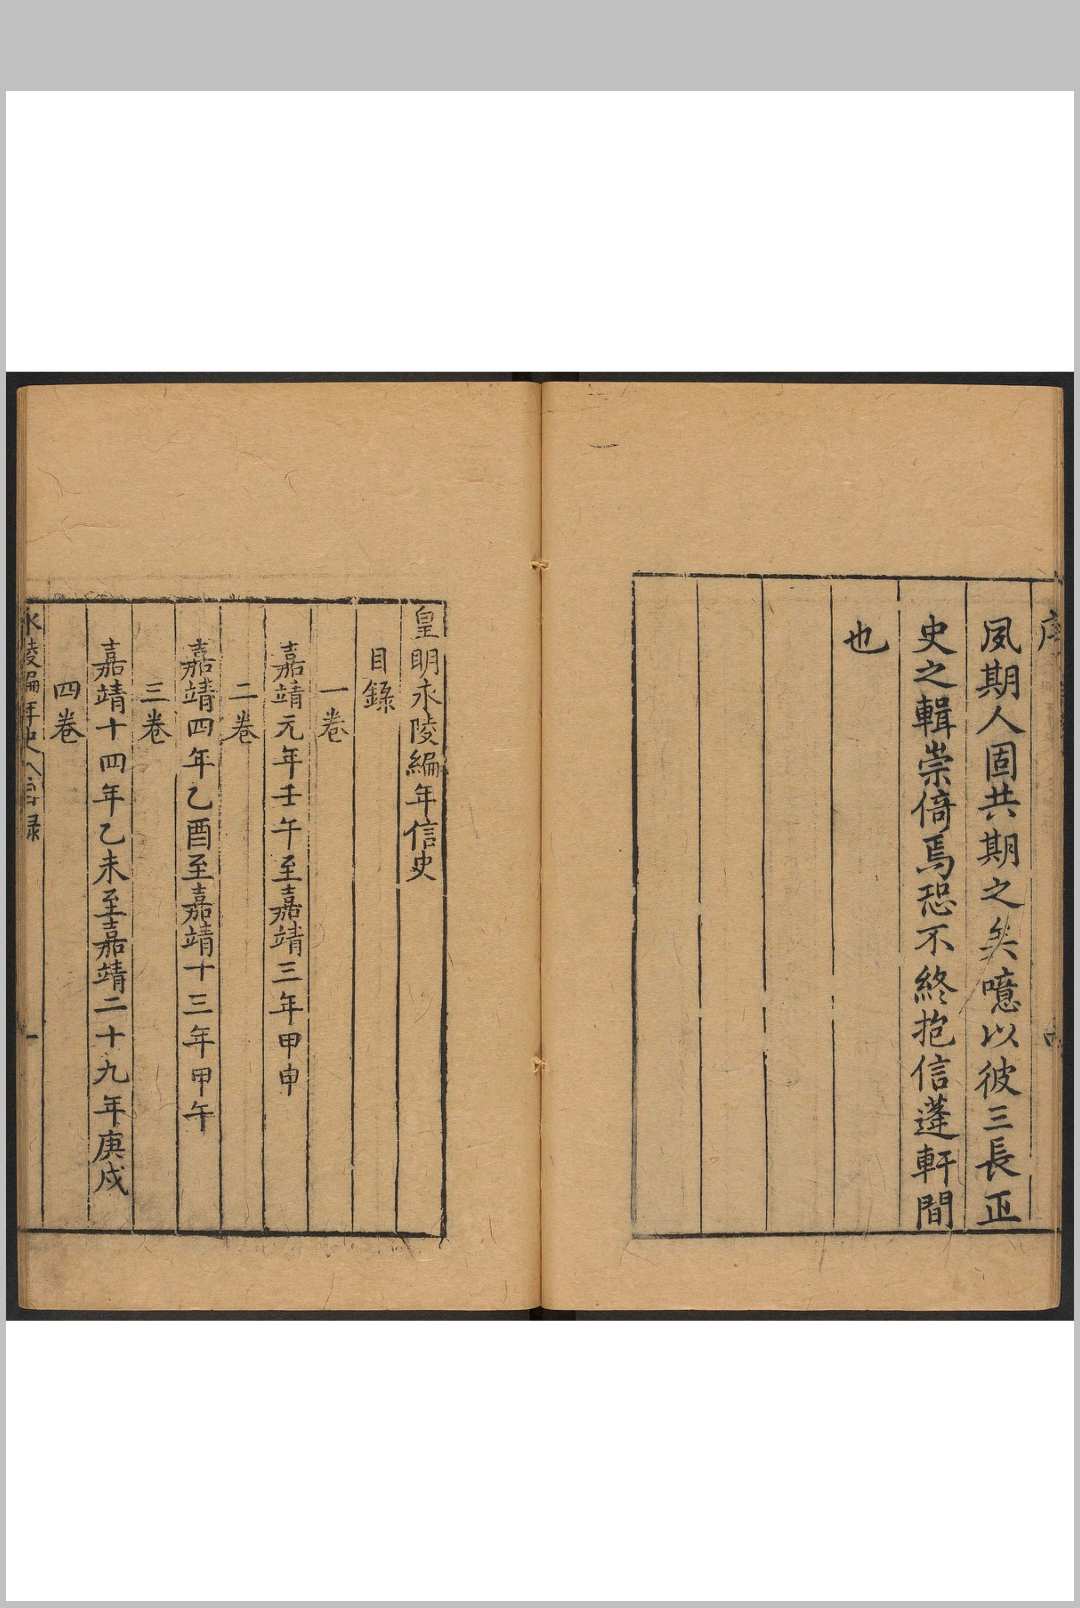 序
夙期人固共期之矣噫以彼三長正
史之輯崇倚焉恐不終抱信蓬軒間
也
皇明永陵編年信史
目錄
一卷
嘉靖元年壬午至嘉靖三年甲申
二卷
嘉靖四年乙酉至嘉靖十三年甲午
三卷
嘉靖十四年乙未至嘉靖二十九年庚戌
四卷
永陵編年史
錄
一